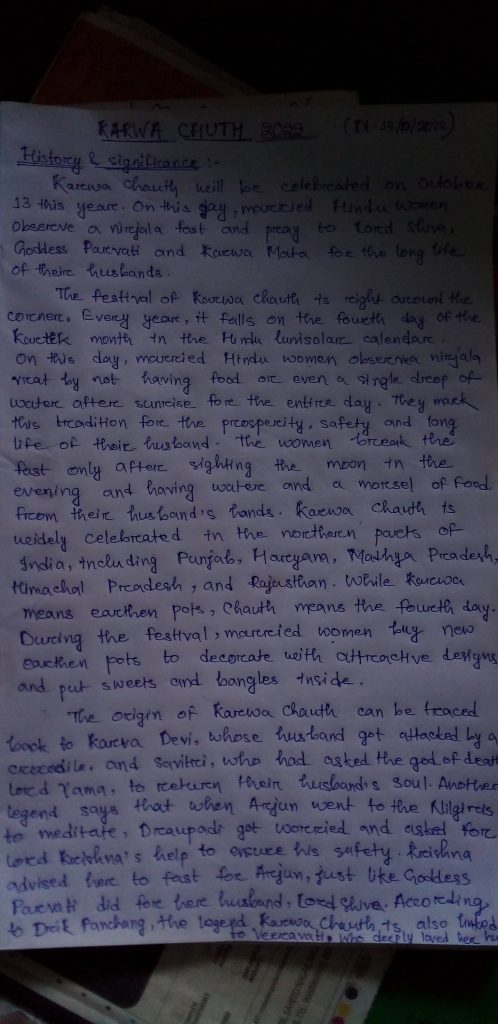 KARWA CHUTH 2022 (Dt-13/10/2022)
History & significance :-
Karwa Chauth will be celebrated on October
13 this year. On this day, married Hindu women
Observe a nirjala fast and pray to Lord Shiva,
Goddess Parvati and Karwa Mata for the long life
of their husbands.
The festival of Karwa Chauth is right around the
corner. Every year, it falls on the fourth day of the
Kartik month in the Hindu lunisolar calendar.
On this day, married Hindu women observe nirjala
vrat by not having food or even a single drop of
water after sunrise for the entire day. They mark
this tradition for the prosperity, safety and long
life of their husband. The women break the
fast only after sighting the moon in the
evening and having water and a morsel of food
from their husband's hands. Karwa Chauth is
widely celebrated in the northern parts of
India, including Punjab, Haryana, Madhya Pradesh,
Himachal Pradesh, and Rajasthan. While Karwa
means earthen pots, Chauth means the fourth day.
During the festival, married women buy new
earthen pots to decorate with attractive designs
and put sweets and bangles inside.
The origin of Karwa Chauth can be traced
back to Karva Devi, whose husband got attacked by a
crocodile, and savitri, who had asked the god of death
Lord Yama, to return their husband's soul. Another
legend says that when Arjun went to the Nilgiris
to meditate, Draupadi got worried and asked for
Lord Krishna's help to ensure his safety. Krishna
advised her to fast for Arjun, just like Goddess
Parvati did for her husband, Lord Shiva. According
to Drik Panchang, the legend Karwa Chauth is also linked
to Veeravati, who deeply loved her